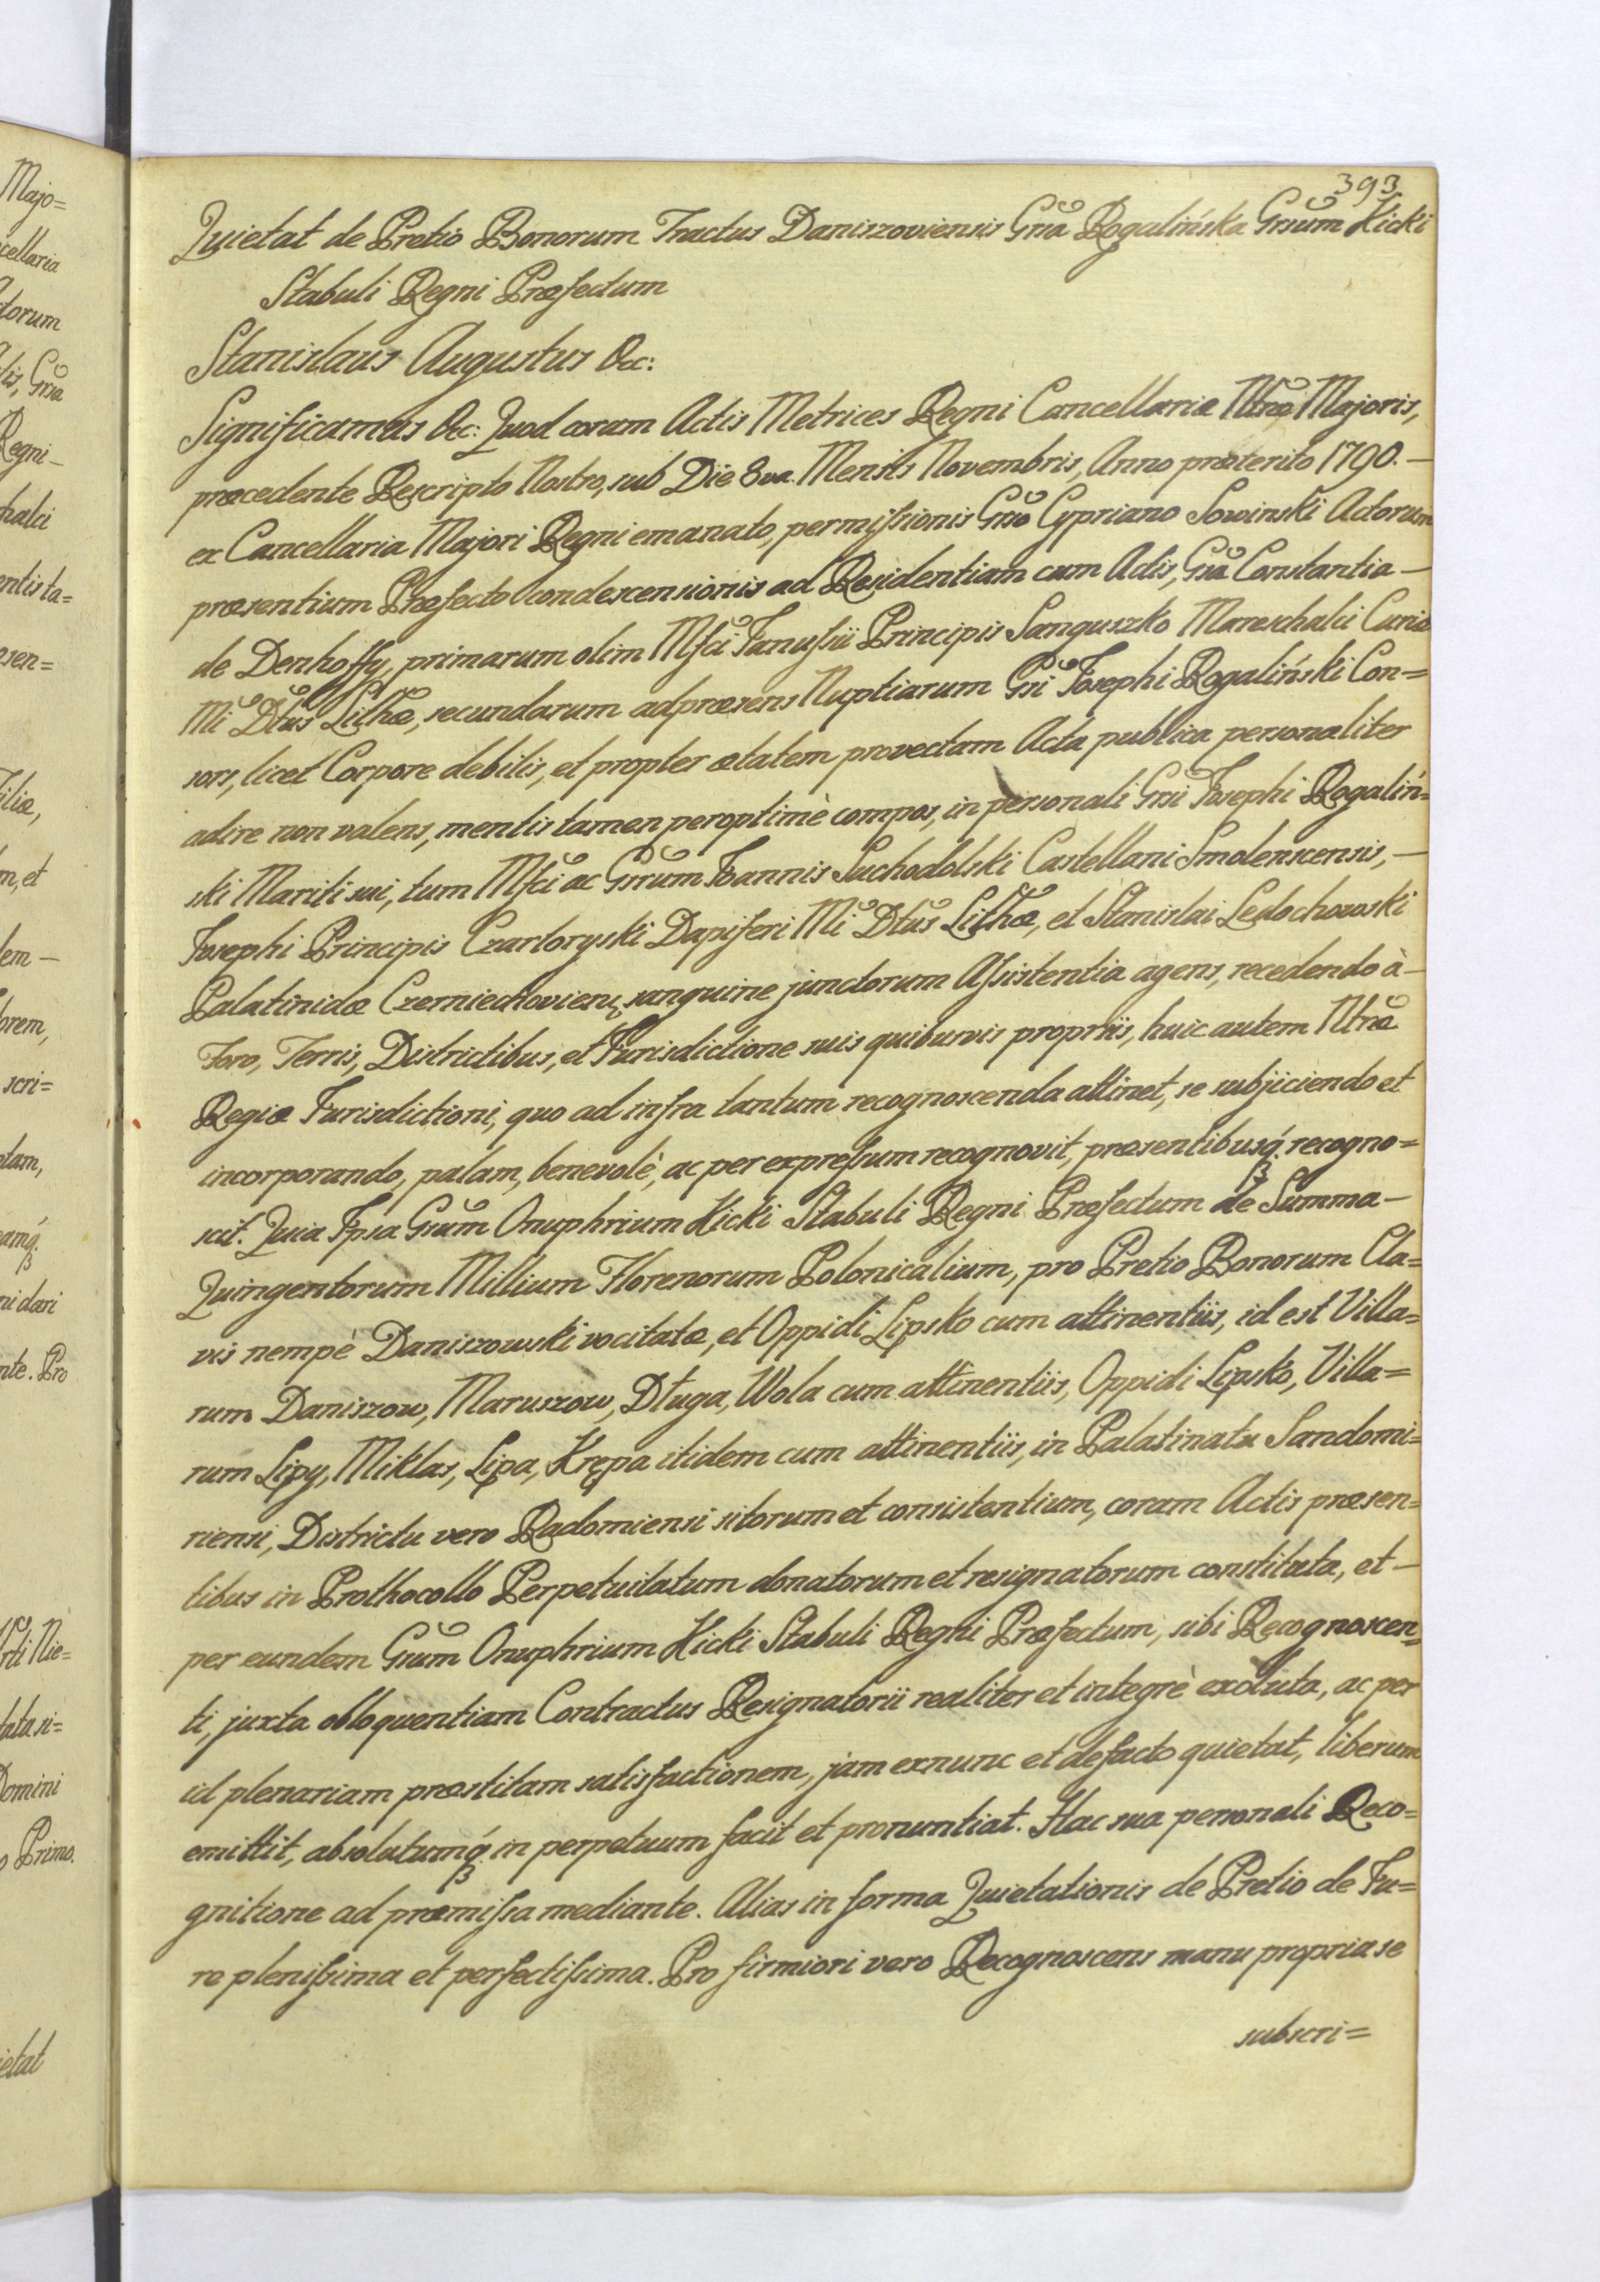 393
Quietat de Pretio Bonorum Tractus Daniszoviensis Gsa Rogalińska Grsum Kicki
Stabuli Regni Præfectum
Stanislaus Augustus &c:
Significamus &c: Quod coram Actis Metrices Regni Cancellariæ Ntræ Majoris,
præcedente Rescripto Nostro, sub Die 8va. Mensis Novembris, Anno præterito 1790. —
ex Cancellaria Majori Regni emanato, permißionis Grso Cypriano Sowinski Actorum
præsentium Præfecto condescensionis ad Residentiam cum Actis, Gsa Constantia —
de Denhoffy, primarum olim Mfci Janußii Principis Sanguszko Mareschalci Curiæ
Mi Dtus Lithæ, secundarum adpræsens Nuptiarum Gsi Josephi Rogaliński Con=
sors, licet Corpore debilis, et propter ætatem provectam Acta publica personaliter
adire non valens, mentis tamen peroptimè compos, in personali Grsi Josephi Rogaliń=
ski Mariti sui, tum Mfci ac Grrum Joannis Suchodolski Castellani Smolenscensis, —
Josephi Principis Czartoryski Dapiferi Mi Dtus Lithæ, et Stanislai Ledochowski
Palatinidæ Czerniechoviens, sanguine junctorum Aßistentia agens, recedendo à —
Foro, Terris, Districtibus, et Jurisdictione suis quibusvis propriis, huic autem Ntræ
Regiæ Jurisdictioni, quo ad infra tantum recognoscenda attinet, se subjiciendo et
incorporando, palam, benevolè, ac per expreßum recognovit, præsentibusq́. recogno=
scit. Quia Ipsa Gsum Onuphrium Kicki Stabuli Regni Præfectum de Summa —
Quingentorum Millium Florenorum Polonicalium, pro Pretio Bonorum Cla=
vis nempè Daniszowski vocitatæ, et Oppidi Lipsko cum attinentiis, id est Villa=
rum Daniszow, Maruszow, Długa, Wola cum attinentiis, Oppidi Lipsko, Villa=
rum Lipy, Miklas, Lipa, Krępa itidem cum attinentiis, in Palatinatu Sandomi=
riensi, Districtu vero Radomiensi sitorum et consistentium, coram Actis præsen=
tibus in Prothocollo Perpetuitatum donatorum et resignatorum constituta, et —
per eundem Gsum Onuphrium Kicki Stabuli Regni Præfectum, sibi Recognoscen=
ti, juxta obloquentiam Contractus Resignatorii realiter et integrè exoluta, ac per
id plenariam præstitam satisfactionem, jam exnunc et defacto quietat, liberum
emittit, absolutumq́. in perpetuum facit et pronuntiat. Hac sua personali Reco=
gnitione ad præmißa mediante. Alias in forma Quietationis de Pretio de Ju=
re plenißima et perfectißima. Pro firmiori vero Recognoscens manu propria se
subscri=